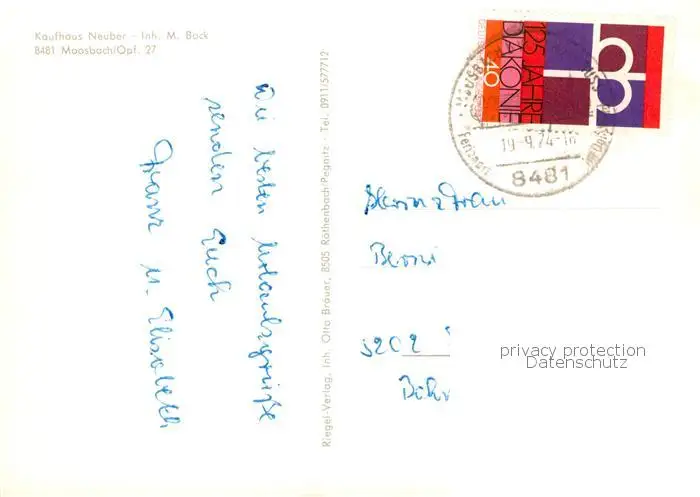 Kaufhaus Neuber - Inh. M. Bock
8481 Moosbach/Opf. 27
Die besten Urlaubsgrüße
senden Euch
Franz u. Elisabeth
Riegel-Verlag, Inh. Otto Bräuer, 8505 Röthenbach/Pegnitz - Tel. 0911/577712
125 JAHRE
DIAKONIE
40
19-9.74-16
8481
Herrn u Frau
Berni
5202
privacy protection
Datenschutz